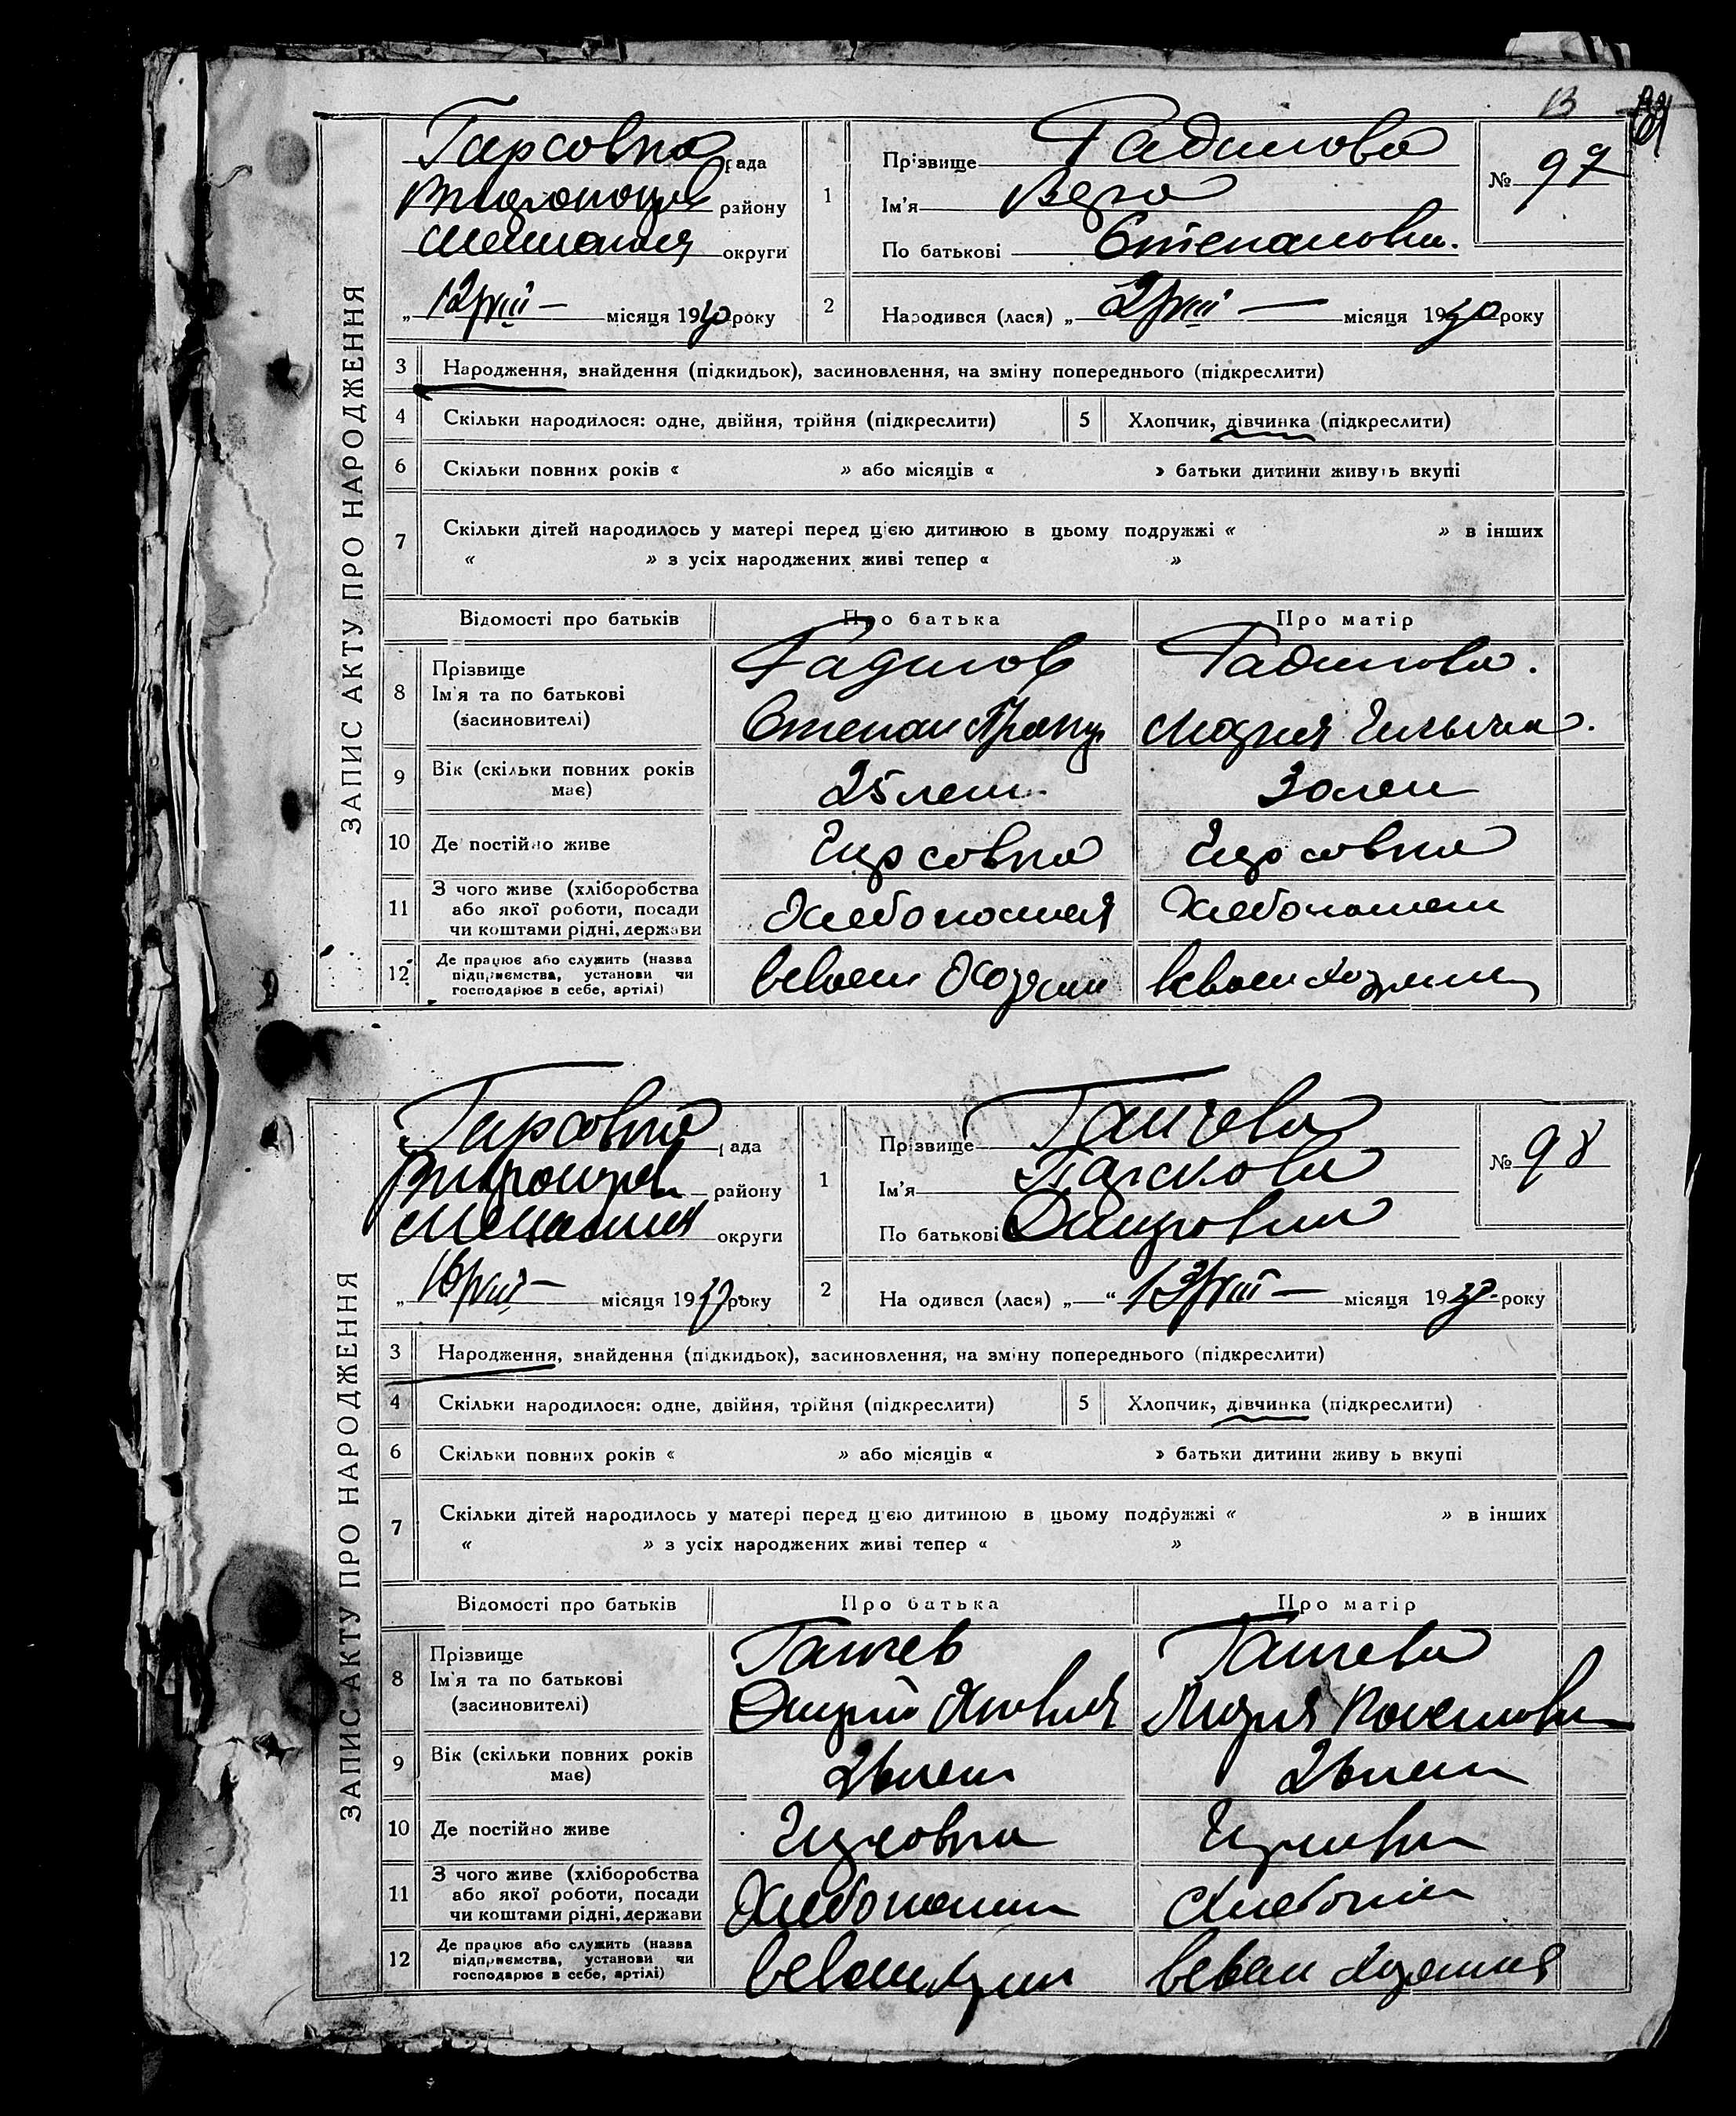 13
ЗАПИС АКТУ ПРО НАРОДЖЕННЯ
Гирсовка рада
району
округи
„12/VIII— місяця 1930 року
1
Прізвище Гадилова
Ім'я Вера
По батькові Степановна.
№ 97
2
Народився (лася) „2/VIII — місяця 1930 року
3 Народження, знайдення (підкидьок), засиновлення, на зміну попереднього (підкреслити)
4 Скільки народилося: одне, двійня, трійня (підкреслити)
5 Хлопчик, дівчинка (підкреслити)
6 Скільки повних років « » або місяців « » батьки дитини живуть вкупі
7 Скільки дітей народилось у матері перед цією дитиною в цьому подружжі « » в інших
« » з усіх народжених живі тепер « »
Відомості про батьків Про батька Про матір
8 Прізвище
Ім'я та по батькові
(засиновителі)
Гадилов
Степан
Гадилова.
Мария
9 Вік (скільки повних років має)
25 лет
30 лет
10 Де постійно живе
Гирсовка
Гирсовка
11 З чого живе (хліборобства
або якої роботи, посади
чи коштами рідні, держави
Хлебопашец
Хлебопашец
12 Де працює або служить (назва
підприємства, установи чи
господарює в себе, артілі)
всвоем Хозяин
всвоем хозяин
ЗАПИС АКТУ ПРО НАРОДЖЕННЯ
Гирсовка рада
району
округи
„16/VIII— місяця 1930 року
1
Прізвище Ганчева
Ім'я
По батькові Дмитровна
№ 98
2
На одився (лася) „ “ 13/VIII — місяця 1930 року
3 Народження, знайдення (підкидьок), засиновлення, на зміну попереднього (підкреслити)
4 Скільки народилося: одне, двійня, трійня (підкреслити)
5 Хлопчик, дівчинка (підкреслити)
6 Скільки повних років « » або місяців « » батьки дитини живу ь вкупі
7 Скільки дітей народилось у матері перед цією дитиною в цьому подружжі « » в інших
« » з усіх народжених живі тепер « »
Відомості про батьків Про батька Про матір
8 Прізвище
Ім'я та по батькові
(засиновителі)
Ганчев
Дмитрий
Ганчева
Мария
9 Вік (скільки повних років має)
26 лет
26 лет
10 Де постійно живе
Гирсовка
Гирсовка
11 З чого живе (хліборобства
або якої роботи, посади
чи коштами рідні, держави
Хлебопашец
12 Де працює або служить (назва
підприємства, установи чи
господарює в себе, артілі)
всвоем
всвоем